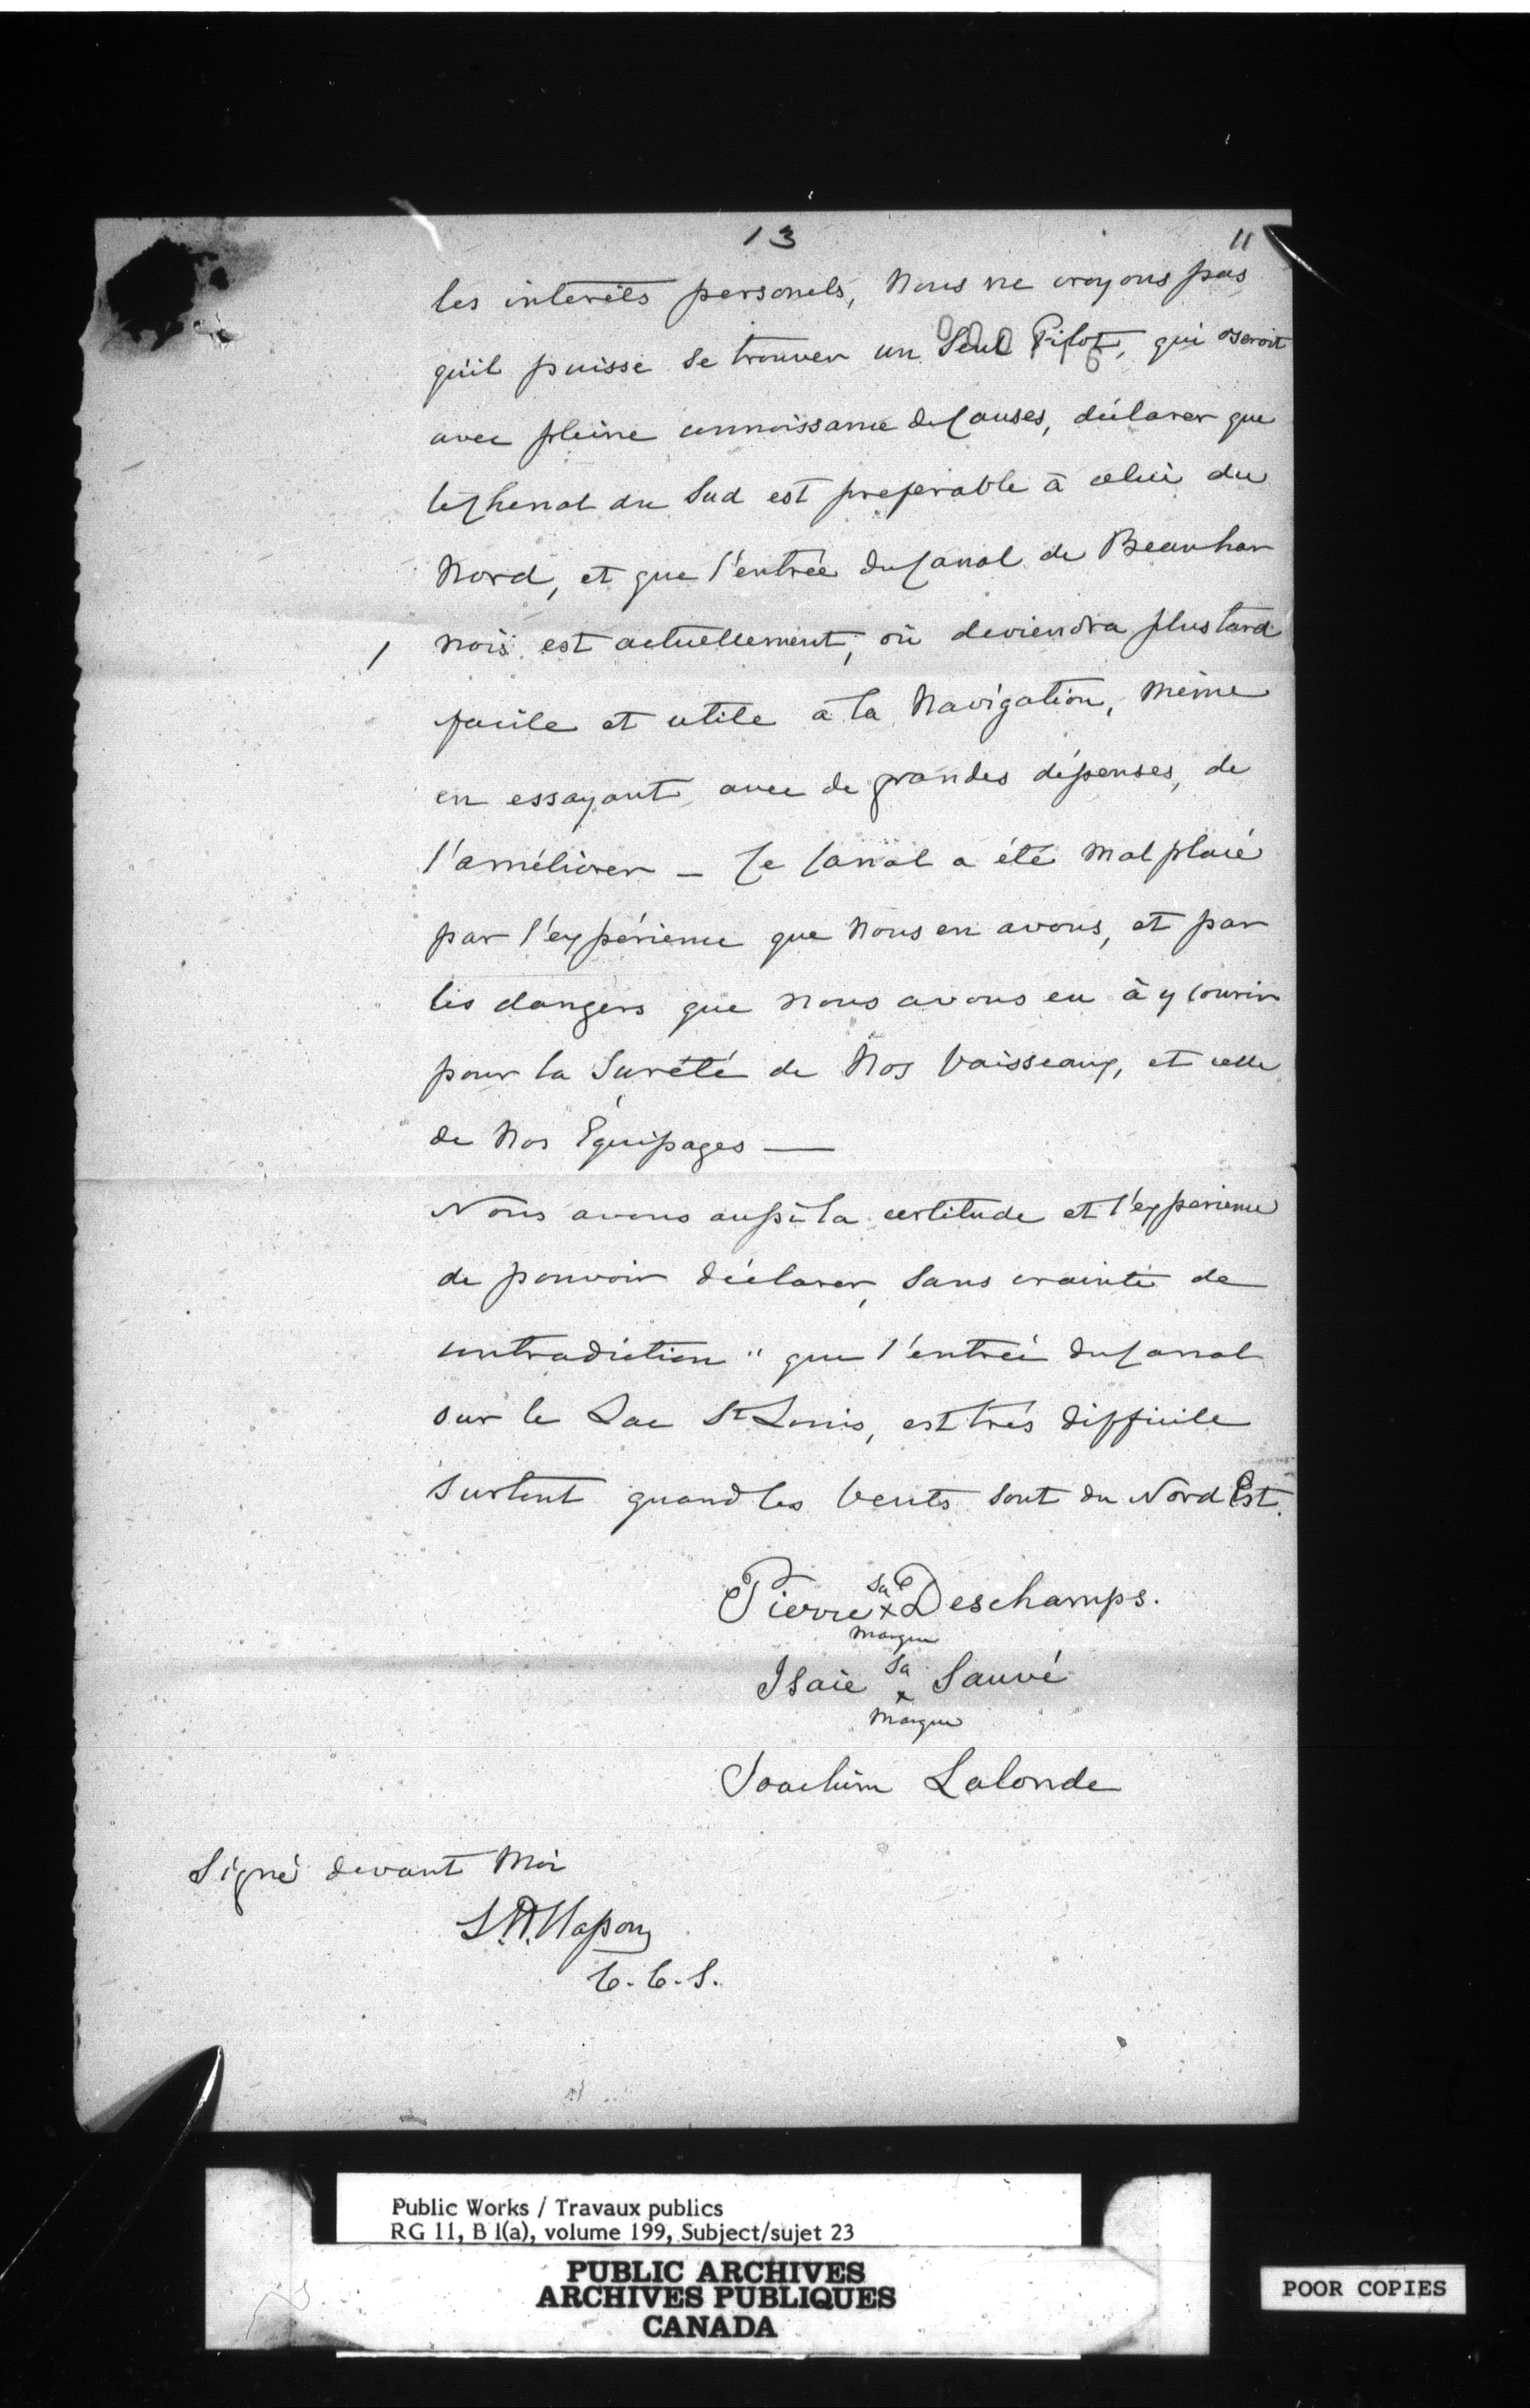 13
11
les interêts personels, Nous ne croyons pas
qu'il puisse se trouver un Seul Pilot, qui oseroit
avec pleine connoissance de Causes, déclarer que
le Chenal du Sud est preferable à celui du
Nord, et que l'entrée du Canal de Beauhar
nois est actuellement, où deviendra plus tard
facile et utile à la Navigation, Même
en essayant avec de grandes dépenses, de
l'améliorer — Ce Canal a été Mal placé
par l'expérience que Nous en avons, et par
les dangers que Nous avons eu à y courir
pour la Sureté de Nos Vaisseaux, et celle
de Nos Équipages —
Nous avons aussi la certitude et l'experience
de pouvoir déclarer, Sans crainte de
contradiction " que l'entrée du Canal
sur le Lac St Louis, est très difficile
Surtout quand les Vents sont du Nord Est.
Pierre sa x marque Deschamps.
Isaie sa x marque Sauvé
Joachim Lalonde
Signé devant Moi
C.C.S.
Public Works / Travaux publics
RG 11, B 1(a), volume 199, Subject/sujet 23
PUBLIC ARCHIVES
ARCHIVES PUBLIQUES
CANADA
POOR COPIES